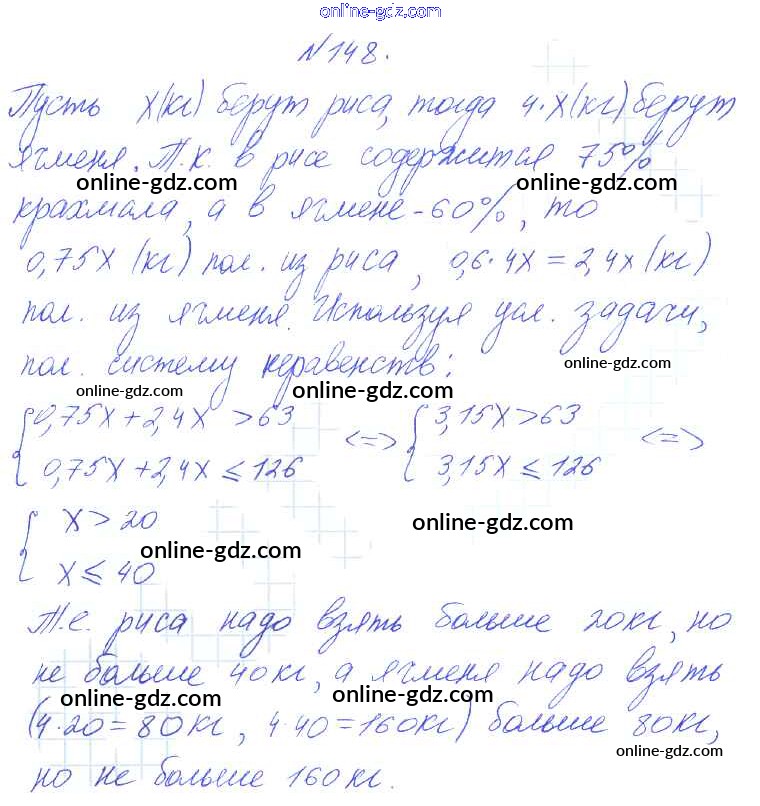 online-gdz.com
№148.
Пусть x(кг) берут риса, тогда 4·x(кг) берут
ячменя. Т.к. в рисе содержится 75%
online-gdz.com online-gdz.com
крахмала, а в ячмене - 60%, то
0,75x (кг) пол. из риса, 0,6·4x = 2,4x (кг)
пол. из ячменя. Используя усл. задачи,
пол. систему неравенств:
online-gdz.com
online-gdz.com online-gdz.com
{ 0,75x + 2,4x > 63 <=> { 3,15x > 63 <=>
0,75x + 2,4x ≤ 126 3,15x ≤ 126
{ x > 20
online-gdz.com
online-gdz.com
x ≤ 40
Т.е. риса надо взять больше 20кг, но
не больше 40кг, а ячменя надо взять
online-gdz.com online-gdz.com
(4·20=80кг, 4·40=160кг) больше 80кг,
online-gdz.com
но не больше 160кг.
online-gdz.com